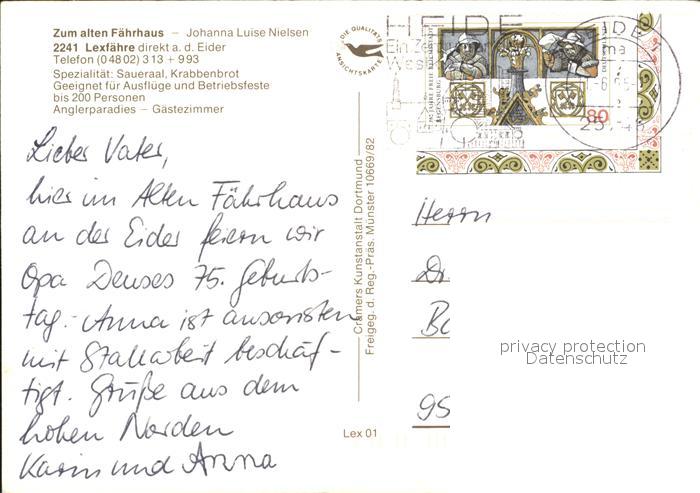 Zum alten Fährhaus – Johanna Luise Nielsen
2241 Lexfähre direkt a. d. Eider
Telefon (04802) 313 + 993
Spezialität: Saueraal, Krabbenbrot
Geeignet für Ausflüge und Betriebsfeste
bis 200 Personen
Anglerparadies – Gästezimmer
DIE QUALITÄTS
ANSICHTSKARTE
HEIDE
80
Lieber Vater,
hier im Alten Fährhaus
an der Eider feiern wir
Opa Denses 75. Geburts-
tag. - Anna ist ansonsten
mit Stallarbeit beschäf-
tigt. Grüße aus dem
hohen Norden
Karin und Anna
Cramers Kunstanstalt Dortmund
Freigeg. d. Reg.-Präs. Münster 10669/82
Lex 01
Herrn
Dr.
95
privacy protection
Datenschutz